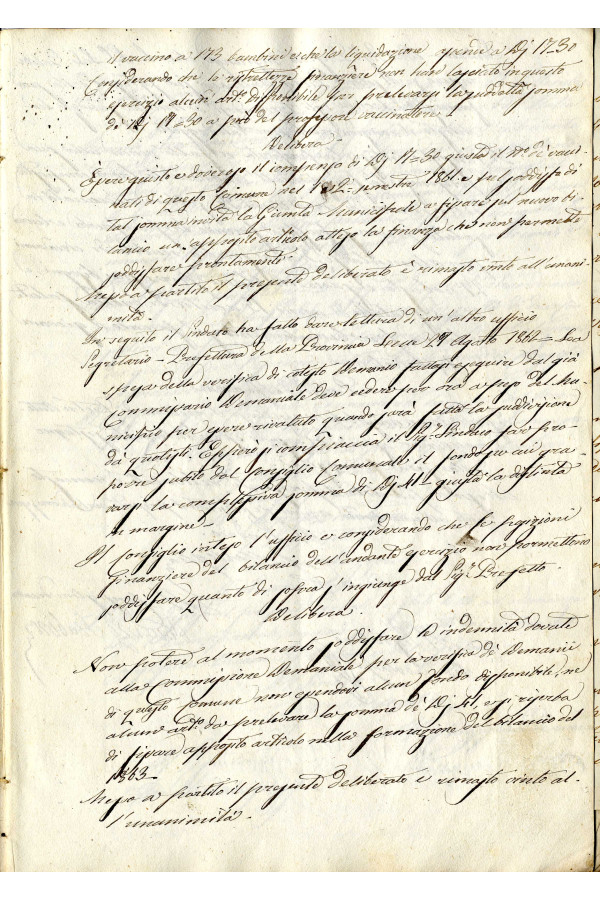 il vaccino a 173 bambini e che la liquidazione ascende a Dj 17=30
Considerando che le ristrettezze finanziere non han lasciato in questo
esercizio alcun arto disponibile per prelevarsi la suddetta somma
di Dj 17=30 a pro del professore vaccinatore
Delibera
Essere giusto e doveroso il compenso di Dj 17=30 giusta il No de' vacci-
nati di questo Comune nel semestre 1861 e pel soddisfo di
tal somma invita la Giunta Municipale a fissare sul nuovo bi-
lancio un apposito articolo atteso la finanza che non permette
soddisfare prontamente
Messo a partito il presente deliberato è rimasto vinto all'unani-
mità
In seguito il Sindaco ha fatto dare lettura di un'altro ufficio
Segretario - Prefettura della Provincia Lecce 29 Agosto 1862 = La
spesa della verifica di cotesto Demanio fattasi eseguire dal già
Commissario Demaniale deve cedere per ora a peso del Mu-
nicipio per essere rivaluto quando sarà fatta la suddivisione
da' quotisti. Epperò si compiaccia il Sigr Sindaco far pro-
porre subito dal Consiglio Comunale il fondo su cui gra-
varsi la complessiva somma di Dj 41 - giusta la distinta
in margine -
Il Consiglio inteso l'ufficio e considerando che le
finanziere del bilancio dell'andante esercizio non permettono
soddisfare quanto di sopra s'ingiunge dal Sigr Prefetto.
Delibera.
Non potere al momento soddisfare le indennità dovute
alla Commissione Demaniale per la verifica de' Demanii
di questo Comune non essendovi alcun fondo disponibile, ne
alcun arto da prelevare la somma de' Dj 41, e si riserba
di fissare apposito articolo nella formazione del bilancio del
1863 -
Messo a partito il presente deliberato è rimasto vinto al-
l'unanimità -